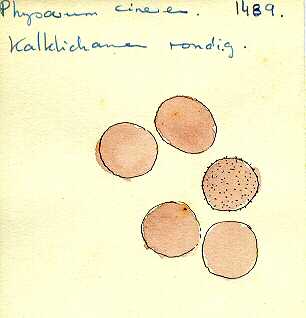 Physarum cinerea. 1489.
Kalklichamen rondig.